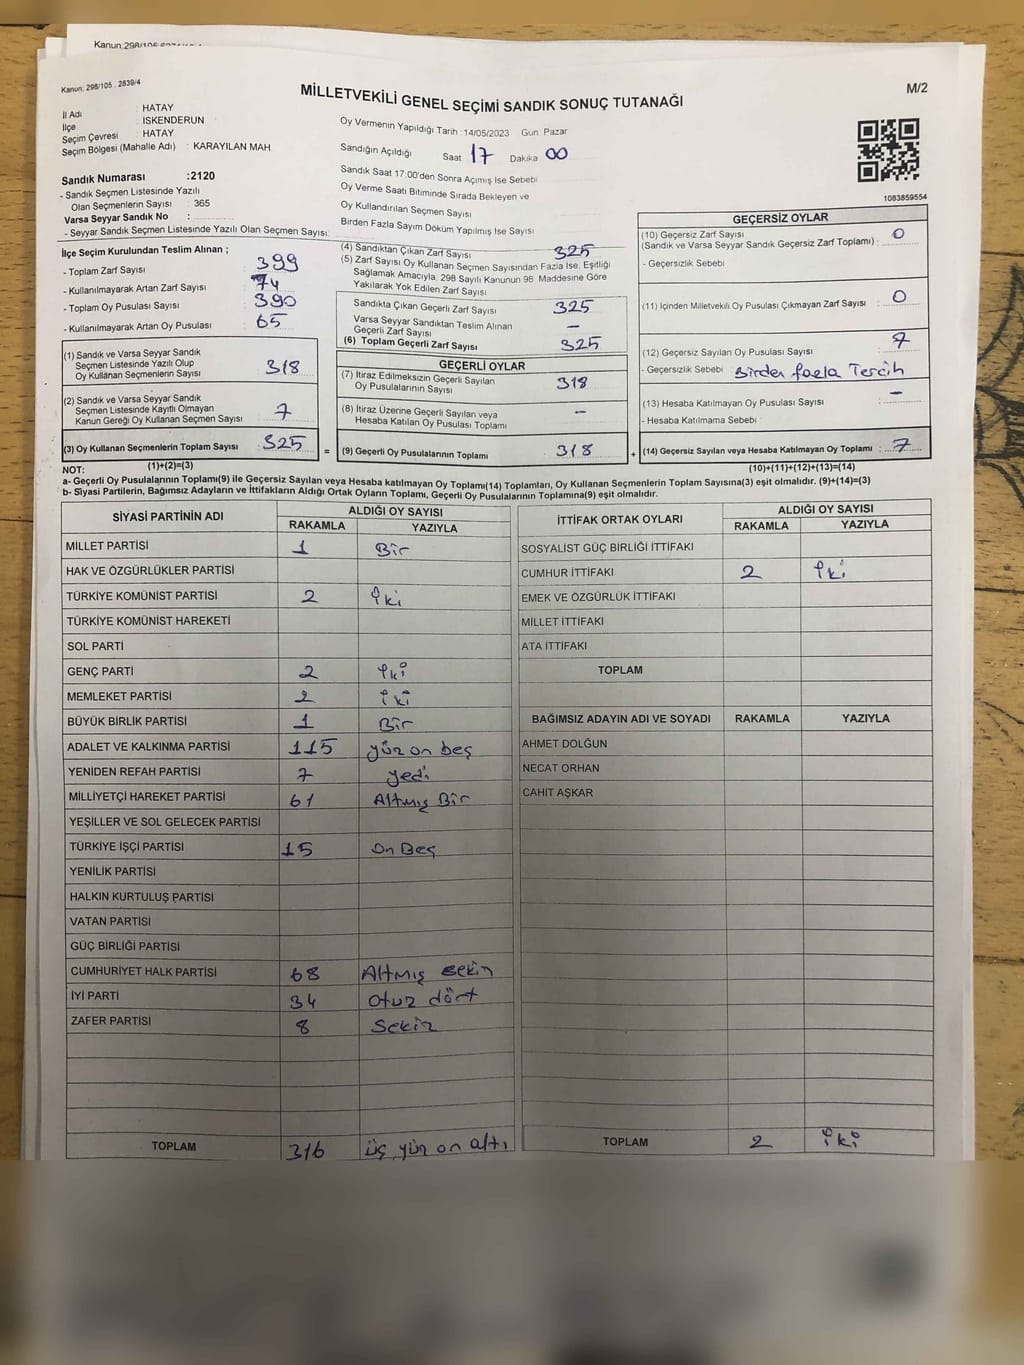 Kanun 298/105
Kanun: 298/105 . 2839/4
MİLLETVEKİLİ GENEL SEÇİMİ SANDIK SONUÇ TUTANAĞI
M/2
İl Adı : HATAY
İlçe : İSKENDERUN
Seçim Çevresi : HATAY
Seçim Bölgesi (Mahalle Adı) : KARAYILAN MAH
Sandık Numarası :2120
- Sandık Seçmen Listesinde Yazılı
Olan Seçmenlerin Sayısı : 365
Varsa Seyyar Sandık No :
- Seyyar Sandık Seçmen Listesinde Yazılı Olan Seçmen Sayısı:
Oy Vermenin Yapıldığı Tarih :14/05/2023 Gun: Pazar
Sandığın Açıldığı Saat 17 Dakika 00
Sandık Saat 17:00'den Sonra Açımış Ise Sebebi
Oy Verme Saati Bitiminde Sırada Bekleyen ve
Oy Kullandırılan Seçmen Sayısı
Birden Fazla Sayım Döküm Yapılmış Ise Sayısı
1083859554
İlçe Seçim Kurulundan Teslim Alınan ;
- Toplam Zarf Sayısı 399
- Kullanılmayarak Artan Zarf Sayısı 74
- Toplam Oy Pusulası Sayısı 390
- Kullanılmayarak Artan Oy Pusulası 65
(1) Sandık ve Varsa Seyyar Sandık
Seçmen Listesinde Yazılı Olup
Oy Kullanan Seçmenlerin Sayısı 318
(2) Sandık ve Varsa Seyyar Sandık
Seçmen Listesinde Kayıtlı Olmayan
Kanun Gereği Oy Kullanan Seçmen Sayısı 7
(3) Oy Kullanan Seçmenlerin Toplam Sayısı 325
(1)+(2)=(3)
(4) Sandıktan Çıkan Zarf Sayısı 325
(5) Zarf Sayısı Oy Kullanan Seçmen Sayısından Fazla Ise, Eşitliği
Sağlamak Amacıyla; 298 Sayılı Kanunun 98. Maddesine Göre
Yakılarak Yok Edilen Zarf Sayısı
Sandıkta Çıkan Geçerli Zarf Sayısı 325
Varsa Seyyar Sandıktan Teslim Alınan
Geçerli Zarf Sayısı –
(6) Toplam Geçerli Zarf Sayısı 325
GEÇERLİ OYLAR
(7) İtiraz Edilmeksizin Geçerli Sayılan
Oy Pusulalarının Sayısı 318
(8) İtiraz Üzerine Geçerli Sayılan veya
Hesaba Katılan Oy Pusulası Toplamı –
= (9) Geçerli Oy Pusulalarının Toplamı 318
GEÇERSİZ OYLAR
(10) Geçersiz Zarf Sayısı
(Sandık ve Varsa Seyyar Sandık Geçersiz Zarf Toplamı) : 0
- Geçersizlik Sebebi
(11) İçinden Milletvekili Oy Pusulası Çıkmayan Zarf Sayısı : 0
(12) Geçersiz Sayılan Oy Pusulası Sayısı 7
- Geçersizlik Sebebi : Birden fazla Tercih
(13) Hesaba Katılmayan Oy Pusulası Sayısı : –
- Hesaba Katılmama Sebebi
+ (14) Geçersiz Sayılan veya Hesaba Katılmayan Oy Toplamı : 7
(10)+(11)+(12)+(13)=(14)
NOT:
a- Geçerli Oy Pusulalarının Toplamı(9) ile Geçersiz Sayılan veya Hesaba katılmayan Oy Toplamı(14) Toplamları, Oy Kullanan Seçmenlerin Toplam Sayısına(3) eşit olmalıdır. (9)+(14)=(3)
b- Siyasi Partilerin, Bağımsız Adayların ve İttifakların Aldığı Ortak Oyların Toplamı, Geçerli Oy Pusulalarının Toplamına(9) eşit olmalıdır.
SİYASİ PARTİNİN ADI ALDIĞI OY SAYISI
RAKAMLA YAZIYLA
MİLLET PARTİSİ 1 Bir
HAK VE ÖZGÜRLÜKLER PARTİSİ
TÜRKİYE KOMÜNİST PARTİSİ 2 iki
TÜRKİYE KOMÜNİST HAREKETİ
SOL PARTİ
GENÇ PARTİ 2 iki
MEMLEKET PARTİSİ 2 iki
BÜYÜK BİRLİK PARTİSİ 1 Bir
ADALET VE KALKINMA PARTİSİ 115 yüz on beş
YENİDEN REFAH PARTİSİ 7 yedi
MİLLİYETÇİ HAREKET PARTİSİ 61 Altmış Bir
YEŞİLLER VE SOL GELECEK PARTİSİ
TÜRKİYE İŞÇİ PARTİSİ 15 On Beş
YENİLİK PARTİSİ
HALKIN KURTULUŞ PARTİSİ
VATAN PARTİSİ
GÜÇ BİRLİĞİ PARTİSİ
CUMHURİYET HALK PARTİSİ 68 Altmış sekiz
İYİ PARTİ 34 otuz dört
ZAFER PARTİSİ 8 Sekiz
TOPLAM 316 üç yüz on altı
İTTİFAK ORTAK OYLARI ALDIĞI OY SAYISI
RAKAMLA YAZIYLA
SOSYALIST GÜÇ BİRLİĞİ İTTİFAKI
CUMHUR İTTİFAKI 2 iki
EMEK VE ÖZGÜRLÜK İTTİFAKI
MİLLET İTTİFAKI
ATA İTTİFAKI
TOPLAM
BAĞIMSIZ ADAYIN ADI VE SOYADI RAKAMLA YAZIYLA
AHMET DOLĞUN
NECAT ORHAN
CAHİT AŞKAR
TOPLAM 2 iki